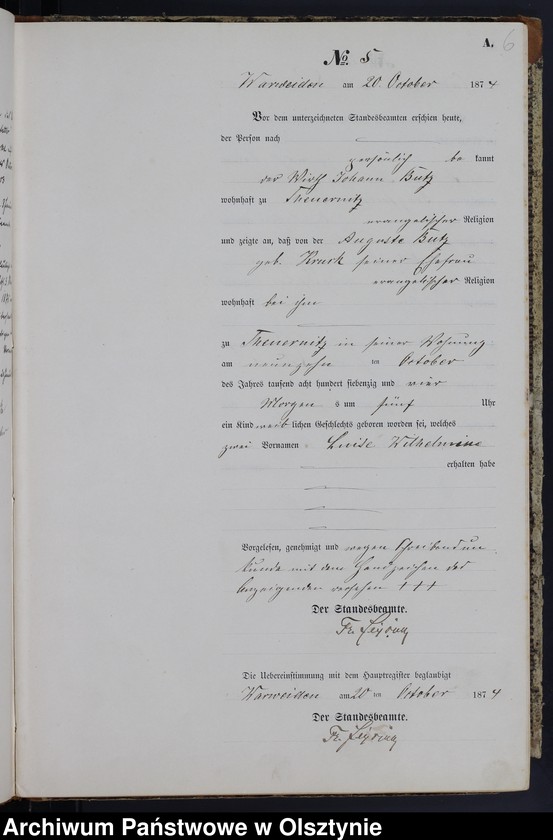 A. 6
No. 5
Warweiden am 20. October 1874
Vor dem unterzeichneten Standesbeamten erschien heute,
der Person nach
persönlich be kannt
der Wirth Johann Butz
wohnhaft zu Theuernitz
evangelischer Religion
und zeigte an, daß von der Auguste Butz
geb. Kruck seiner Ehefrau
evangelischer Religion
wohnhaft bei ihm
zu Theuernitz in seiner Wohnung
am neunzehn ten October
des Jahres tausend acht hundert siebenzig und vier
Morgen s um fünf Uhr
ein Kind weib lichen Geschlechts geboren worden sei, welches
zwei Vornamen Luise Wilhelmine
erhalten habe
Vorgelesen, genehmigt und wegen Schreibensun
kunde mit dem Handzeichen des
Anzeigenden versehen +++
Der Standesbeamte.
Fr.
Die Uebereinstimmung mit dem Hauptregister beglaubigt
Warweiden am 20 ten October 1874
Der Standesbeamte.
Fr.
Archiwum Państwowe w Olsztynie